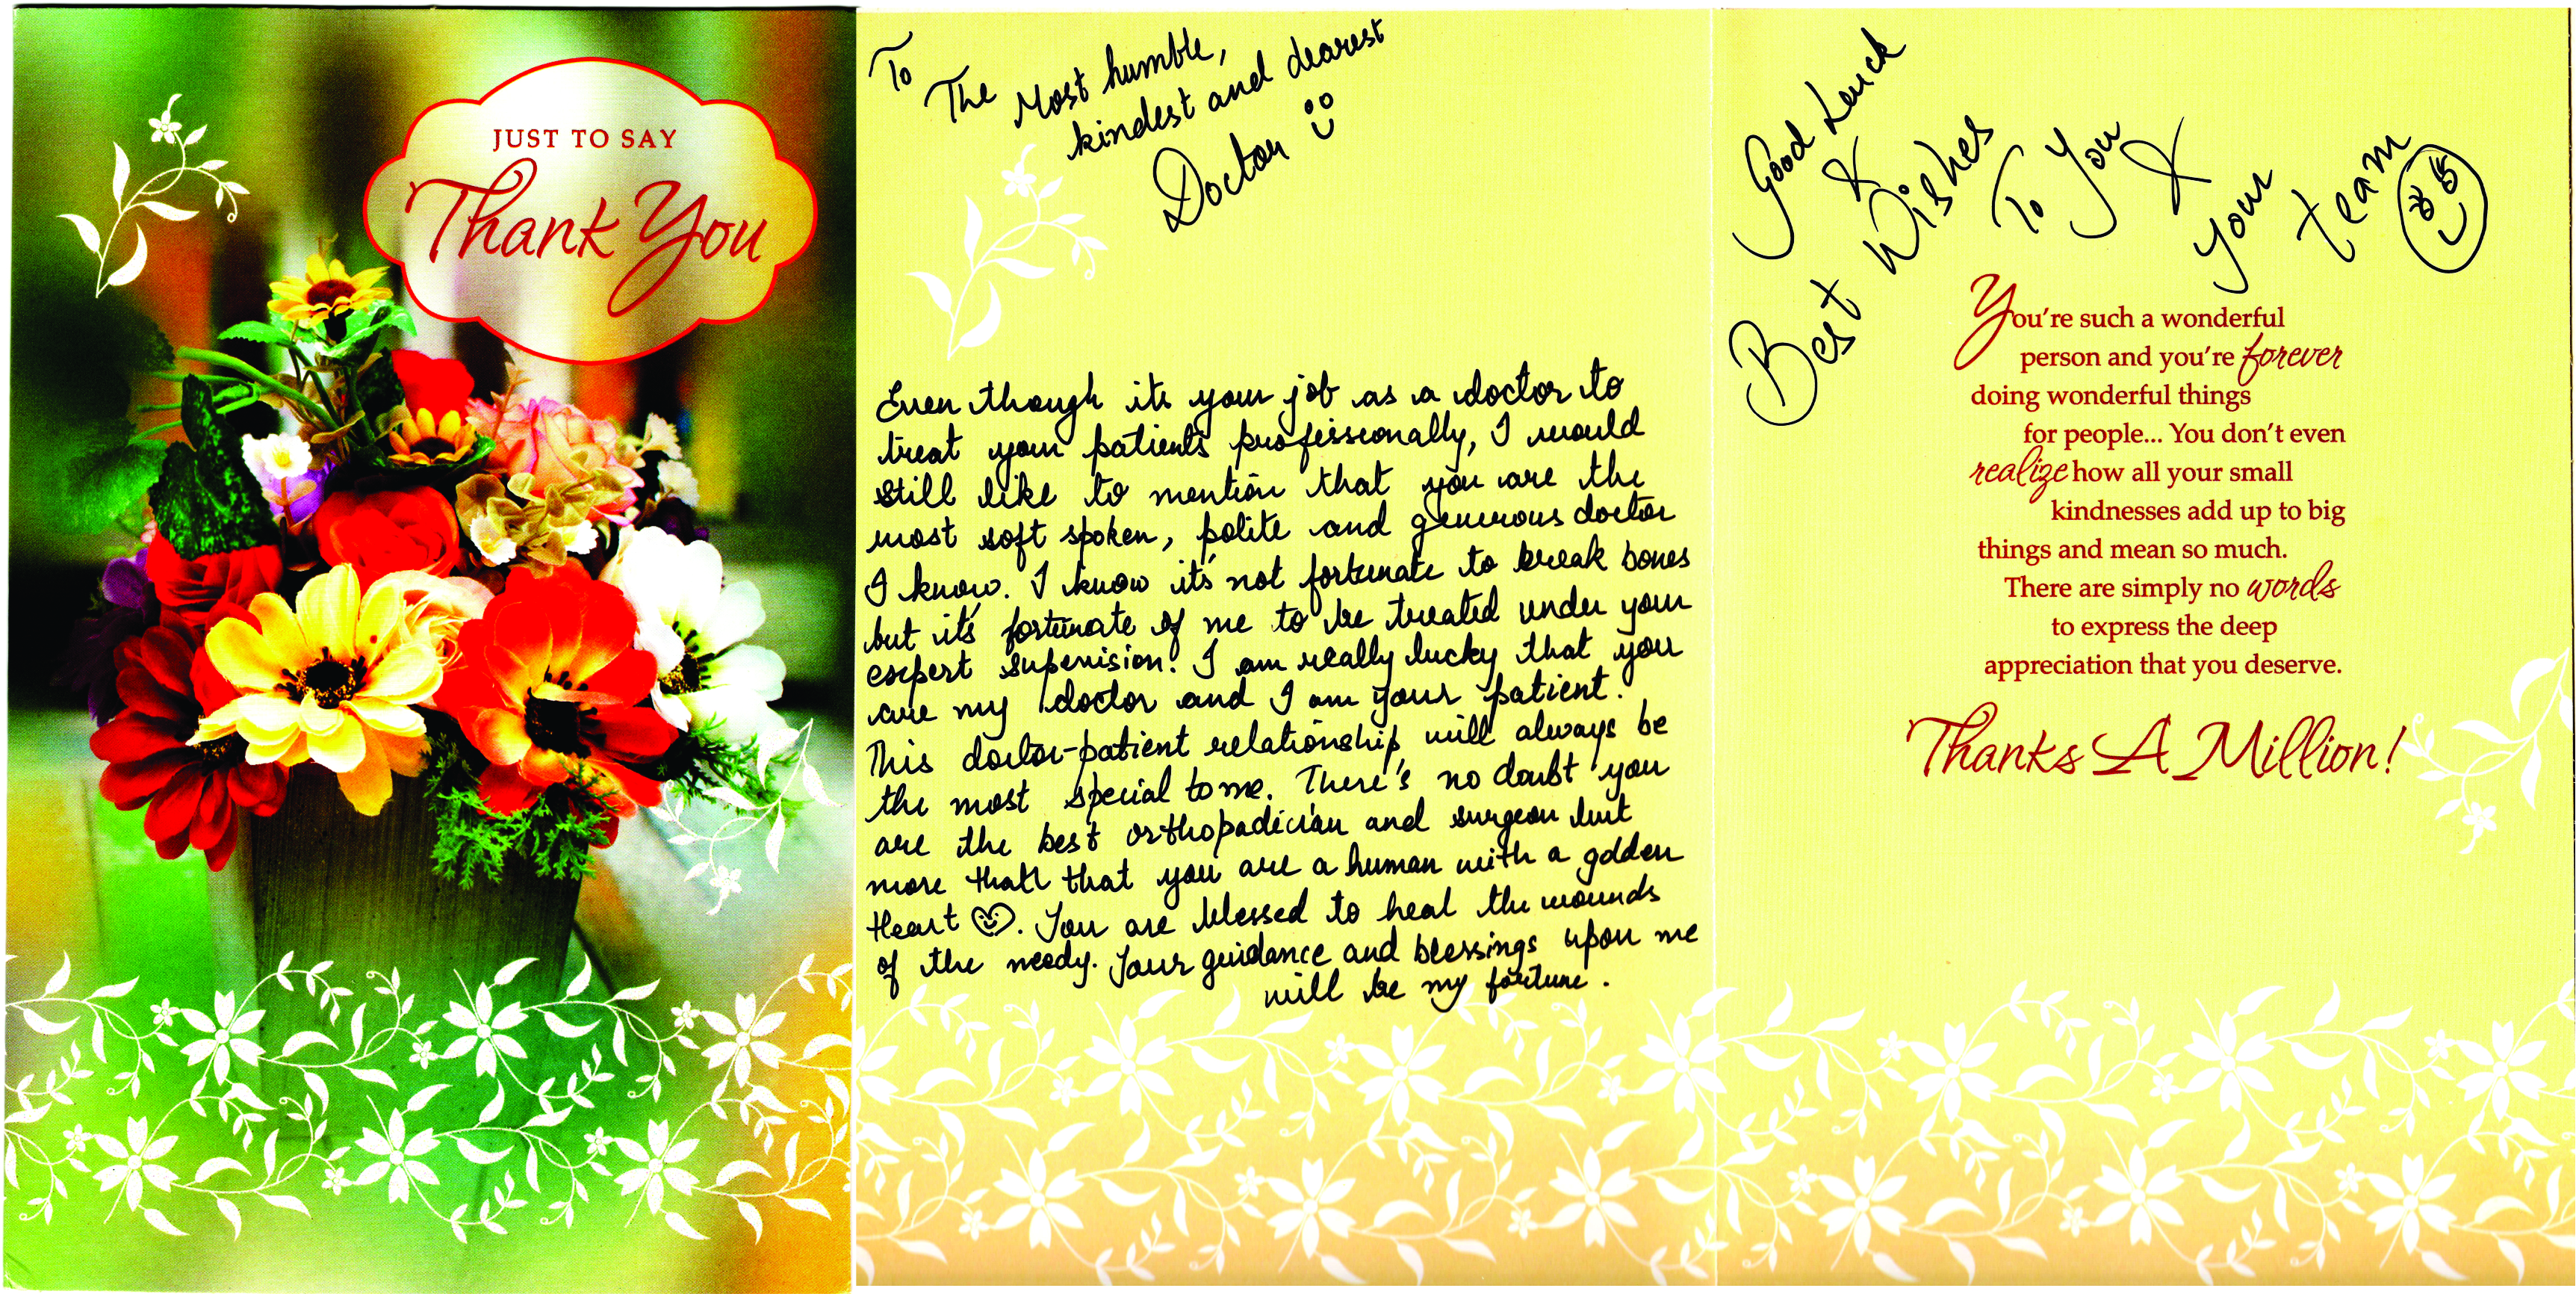 JUST TO SAY
Thank You
To
The Most humble,
kindest and dearest
Doctor
Even though its your job as a doctor to
treat your patients professionally, I would
still like to mention that you are the
most soft spoken, polite and generous doctor
I know. I know it's not fortunate to break bones
but it's fortunate of me to be treated under your
expert supervision! I am really lucky that you
are my doctor and I am your patient.
This doctor-patient relationship will always be
the most special to me. There's no doubt you
are the best orthopadician and surgeon but
more than that you are a human with a golden
Heart. You are blessed to heal the wounds
of the needy. Your guidance and blessings upon me
will be my fortune.
Good Luck
&
Best Wishes
To You
&
your
team
You're such a wonderful
person and you're forever
doing wonderful things
for people... You don't even
realize how all your small
kindnesses add up to big
things and mean so much.
There are simply no words
to express the deep
appreciation that you deserve.
Thanks A Million!